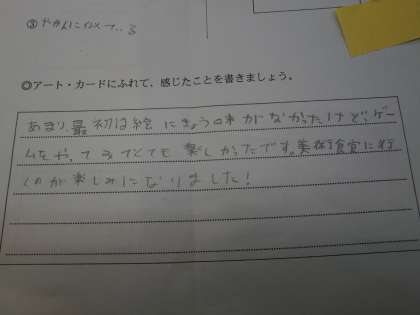 ③やかんににてる
◎アート・カードにふれて、感じたことを書きましょう。
あまり、最初は絵にきょう味がなかったけど、ゲー
ムをやってみてとても楽しかったです。美術館に行
くのが楽しみになりました！